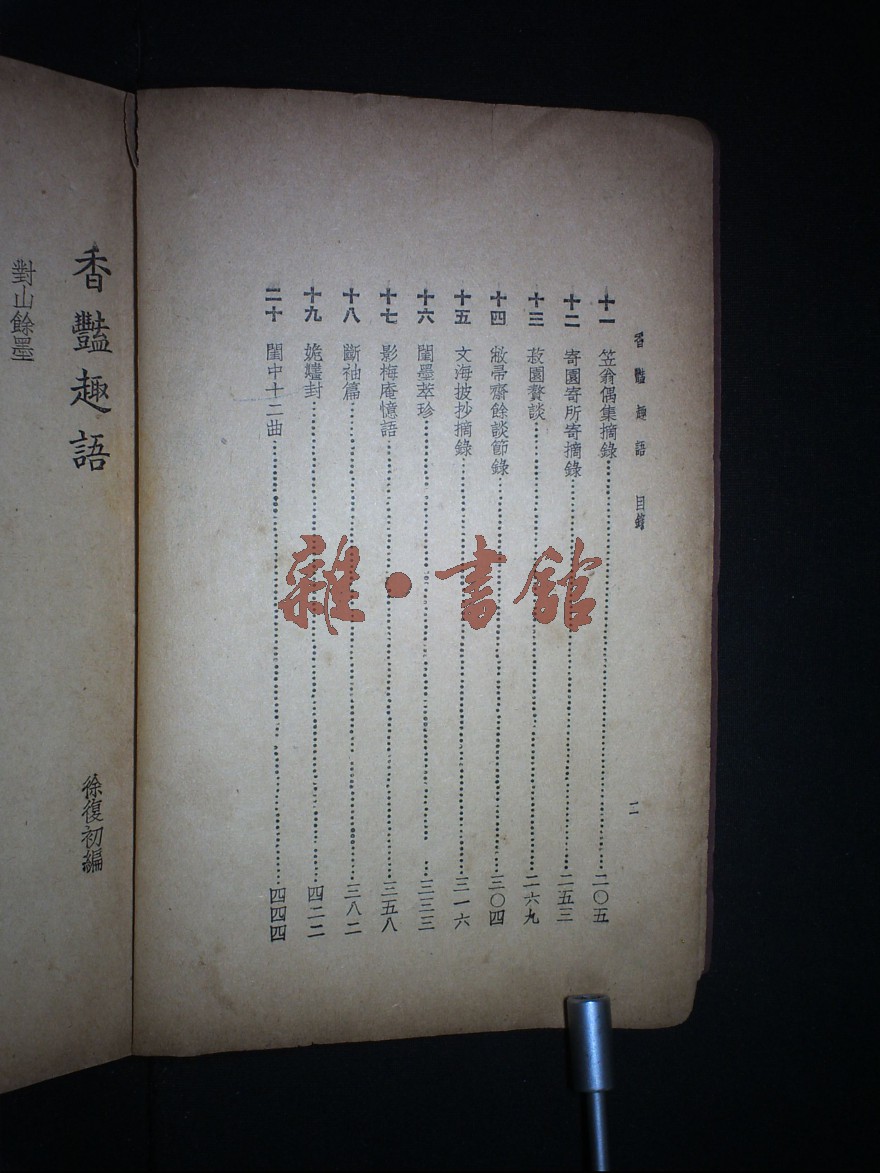 香豔趣語 目錄 二
十一 笠翁偶集摘錄 二〇五
十二 寄園寄所寄摘錄 二五三
十三 菽園贅談 二六九
十四 敝帚齋餘談節錄 三〇四
十五 文海披抄摘錄 三一六
十六 閨墨萃珍 三三三
十七 影梅庵憶語 三五八
十八 斷袖篇 三八二
十九 妮嬧封 四二二
二十 閨中十二曲 四四四
香豔趣語 徐復初編
對山餘墨
雜·書館